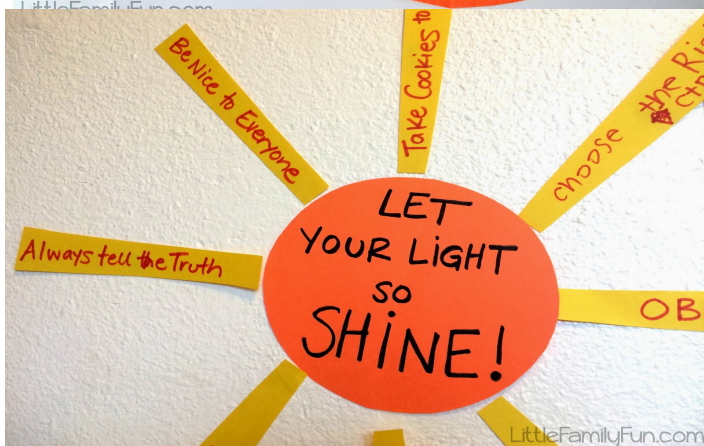 LittleFamilyFun.com
Be Nice to Everyone
Take Cookies to
choose the
Always tell the Truth
LET
YOUR LIGHT
SO
SHINE!
OB
LittleFamilyFun.com